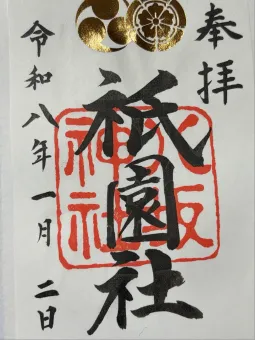 奉拝
祇園社
八坂神社
令和八年一月二日